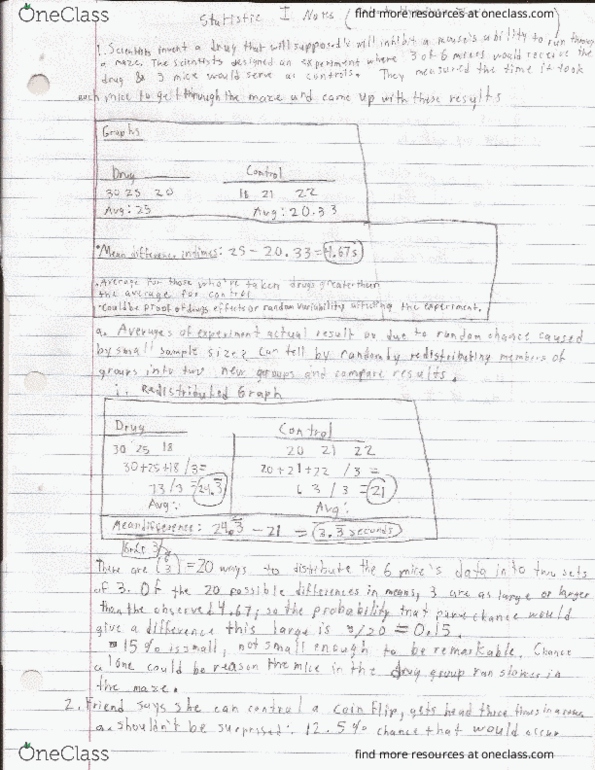 find more resources at oneclass.com
OneClass
Statistic I Notes (
1. Scientists invent a drug that will supposedly will inhibit a mouse's ability to run through
a maze. The scientists designed an experiment where 3 of 6 mices would receive the
drug & 3 mice would serve as controls. They measured the time it took
each mice to get through the maze and came up with these results
Graphs
Drug Control
30 25 20 18 21 22
Avg: 25 Avg: 20.33
*Mean difference in times: 25 - 20.33 = 4.67s
.Average for those who've taken drugs greater than
the average for control
.Could be proof of drugs effects or random variability affecting the experiment.
a. Averages of experiment actual result or due to random chance caused
by small sample size? Can tell by randomly redistributing members of
groups into two new groups and compare results.
i. Redistributed Graph
Drug Control
30 25 18 20 21 22
30+25+18 /3= 20+21+22 /3 =
73/3 = 24.3 63/3 = 21
Avg: Avg:
Mean difference: 24.3 - 21 = 3.3 seconds
There are (6 3) = 20 ways to distribute the 6 mice's data into two sets
of 3. Of the 20 possible differences in means, 3 are as large or larger
than the observed 4.67; so the probability that pure chance would
give a difference this large is 3/20 = 0.15.
15% is small, not small enough to be remarkable. Chance
alone could be reason the mice in the drug group ran slower in
the maze.
2. Friend says she can control a coin flip, gets head three times in a row
a. shouldn't be surprised: 12.5% chance that would occur
OneClass
find more resources at oneclass.com